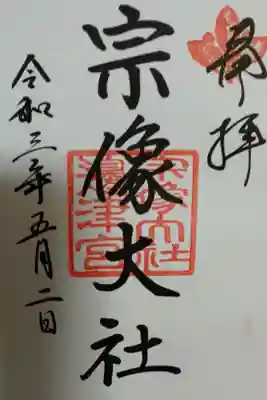 奉拝
宗像大社
宗像大社
邊津宮
令和三年五月二日